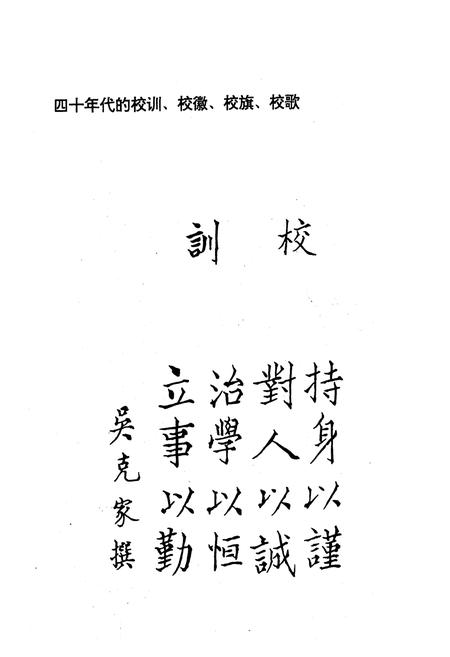 四十年代的校训、校徽、校旗、校歌
校訓
持身以謹
對人以誠
治學以恒
立事以勤
吳克家撰